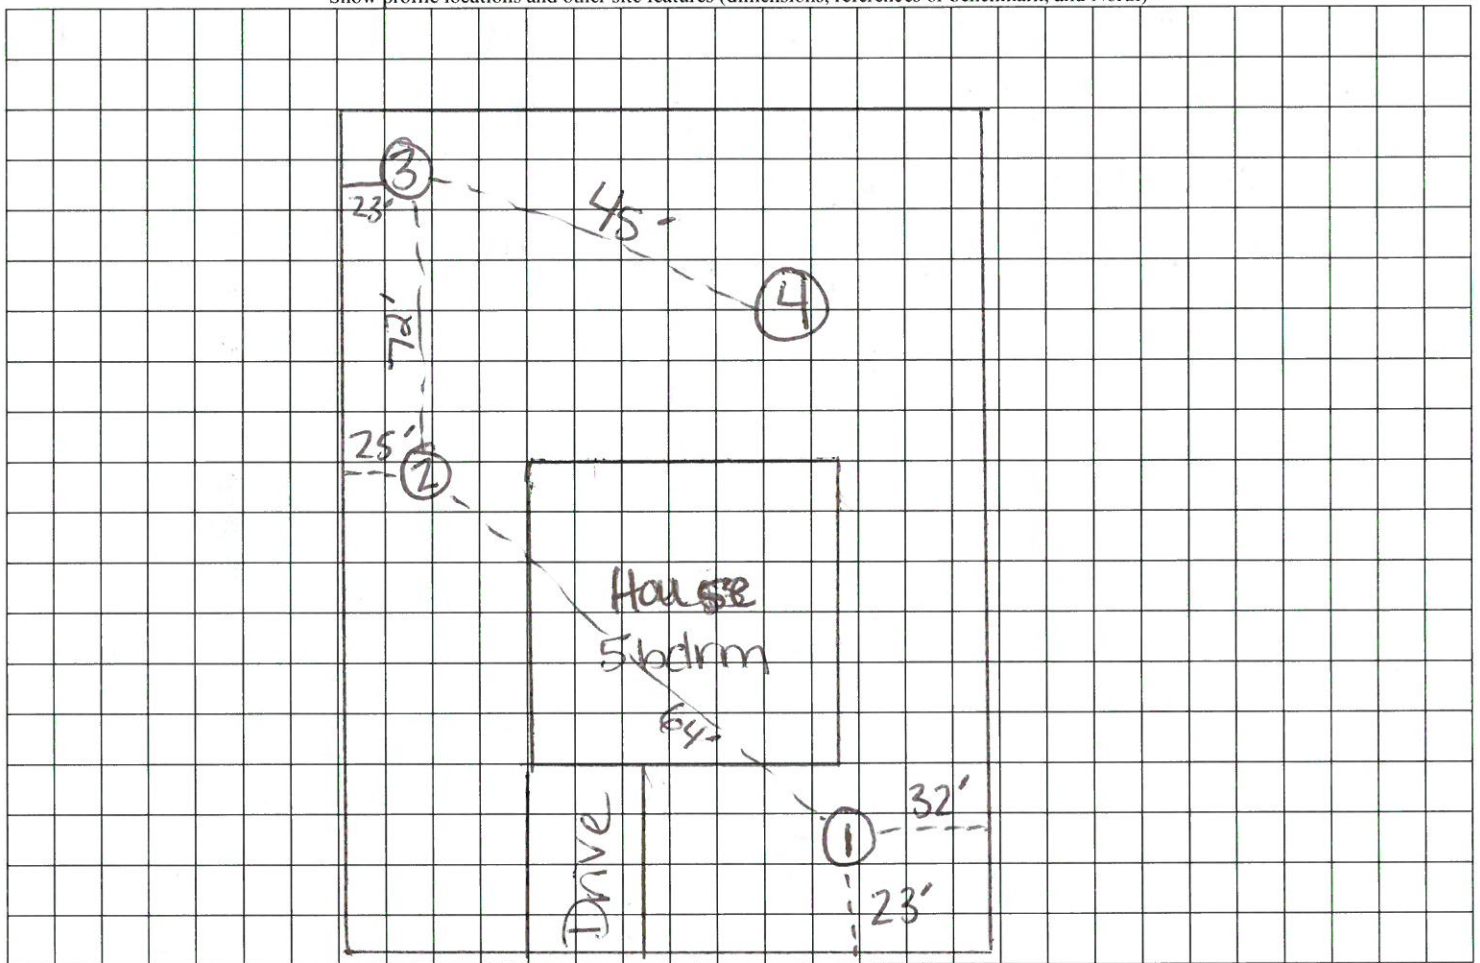 Show profile locations and other site features (dimensions, references or benchmark, and North)
3
23'
45'
4
72'
25'
2
House
5 bdrm
64'
32'
1
Drive
23'